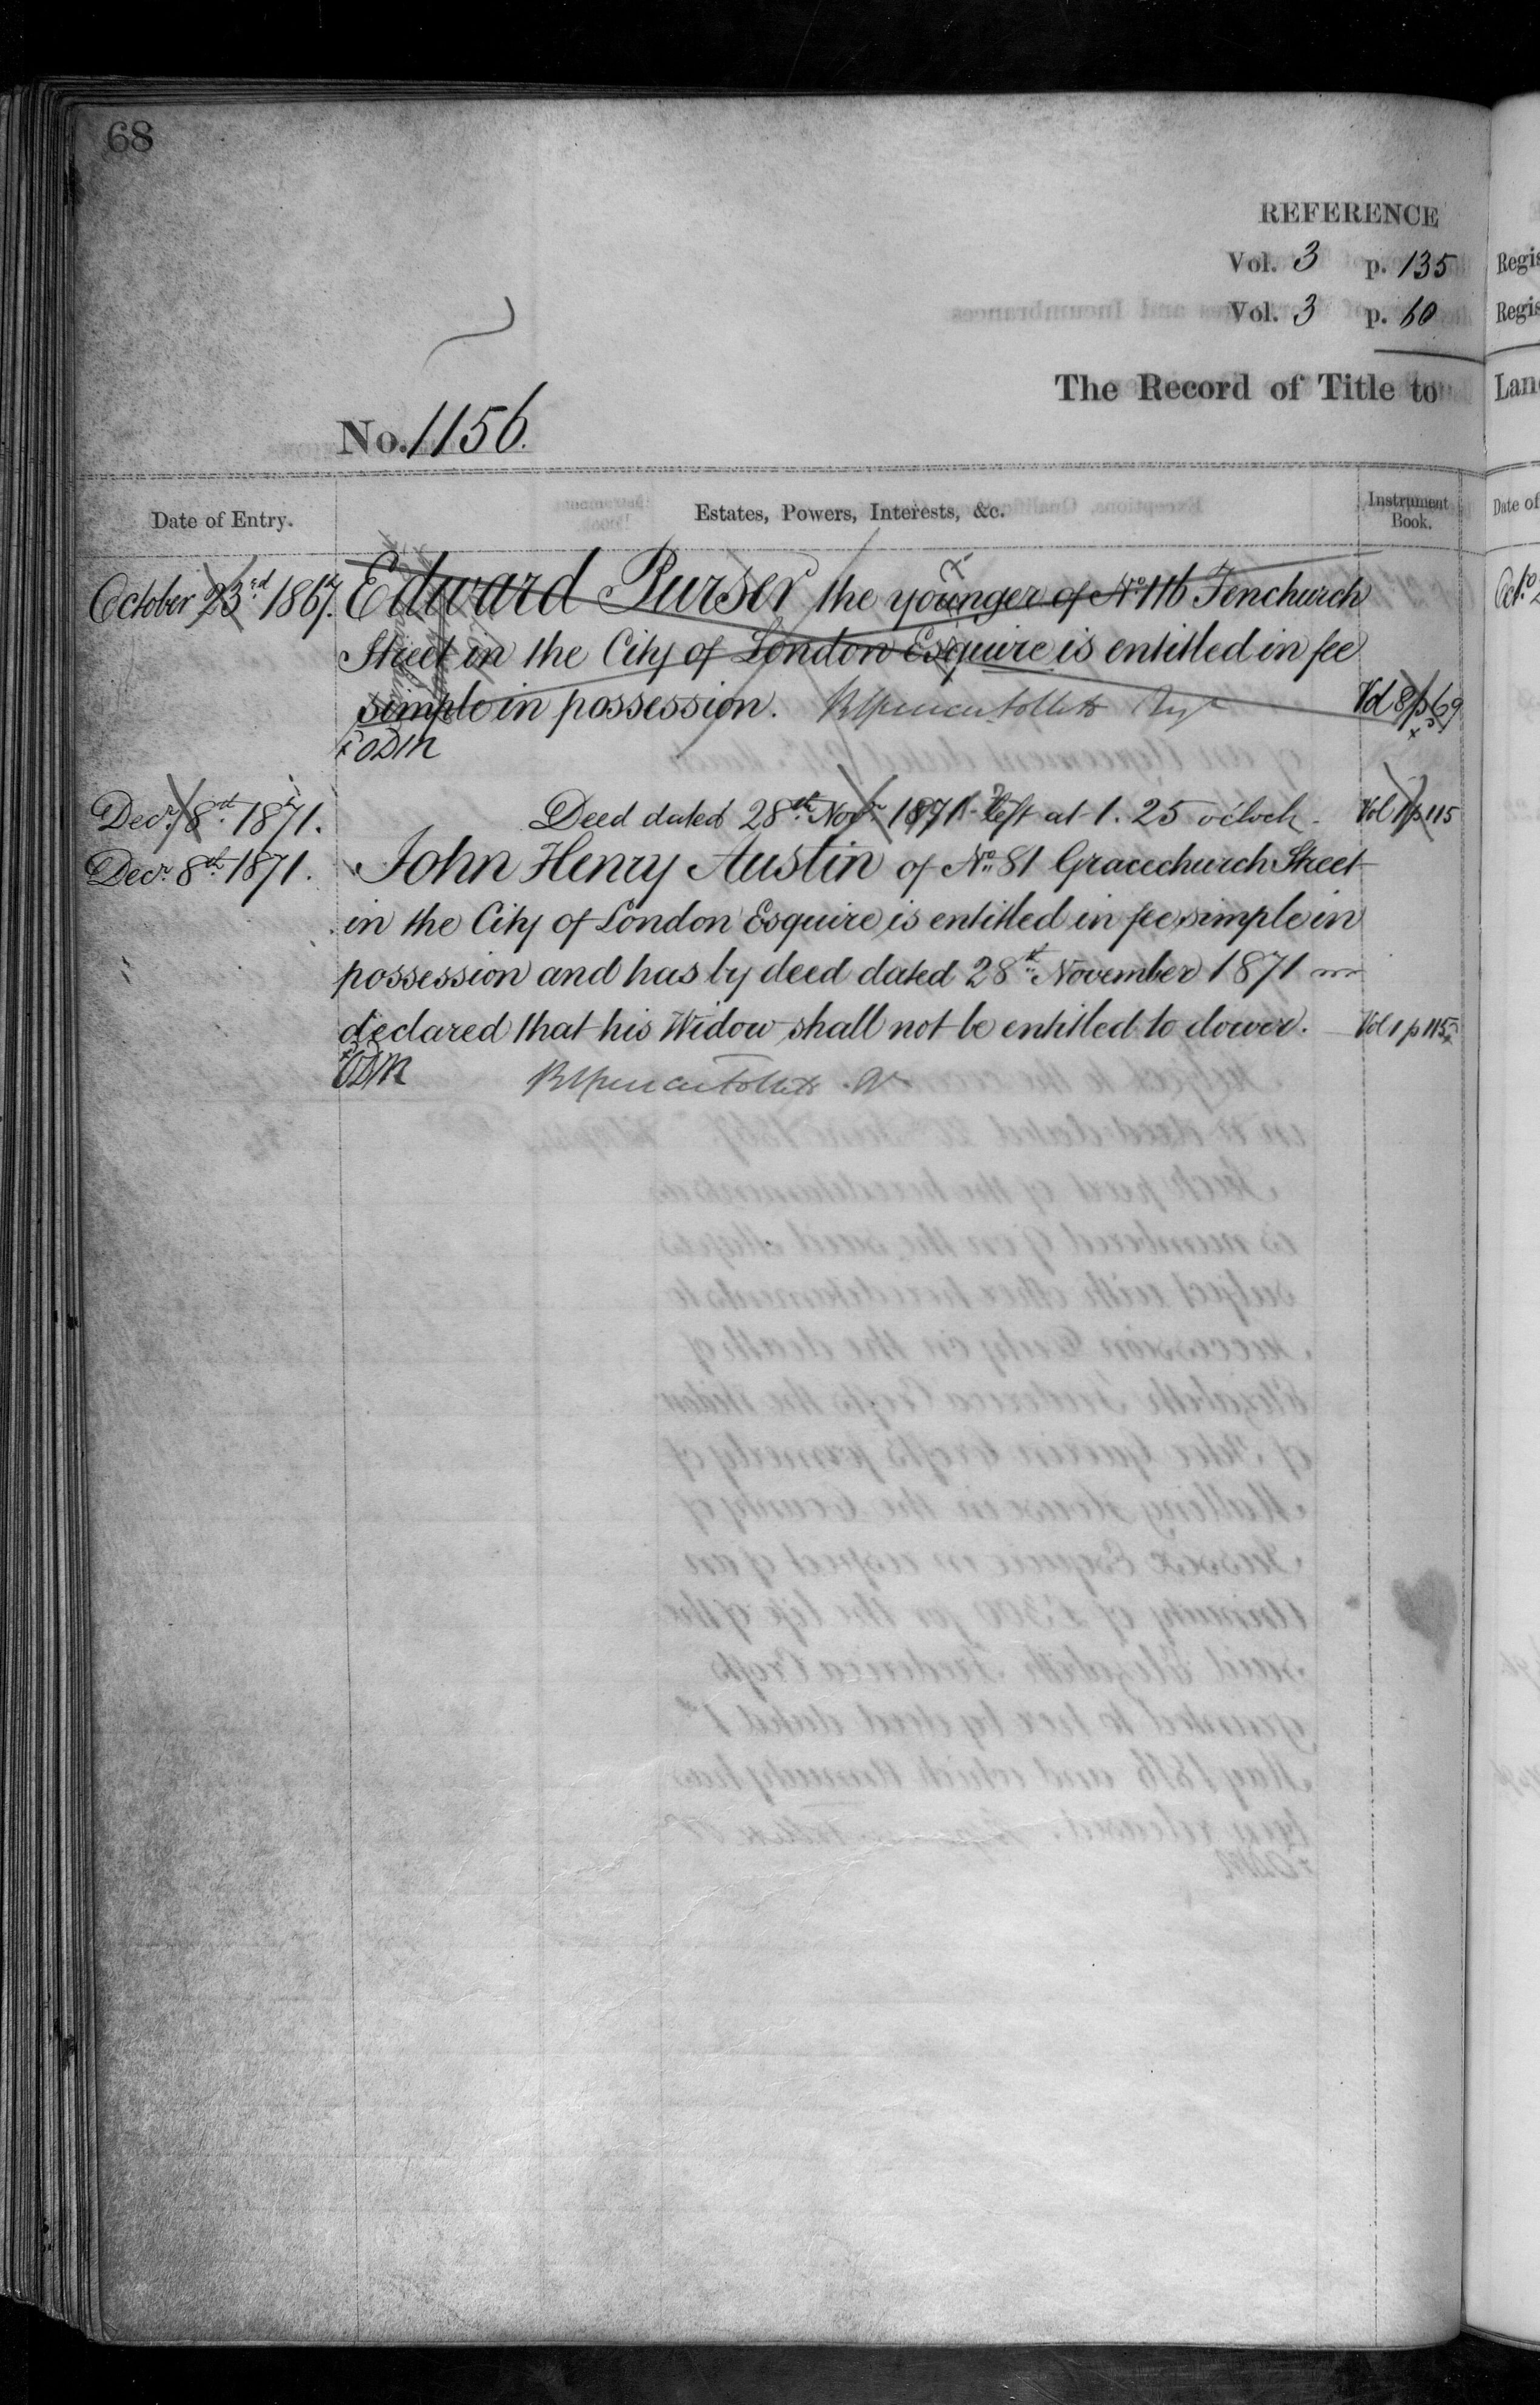 68
REFERENCE
Vol. 3 p. 135
Vol. 3 p. 60
The Record of Title to
No. 1156.
Date of Entry.
Estates, Powers, Interests, &c.
Instrument Book.
October 23rd 1867. Edward Purser the younger of No. 116 Fenchurch
Street in the City of London Esquire is entitled in fee
simple in possession. Vol 8 p 69
ODM
Decr. 8th 1871. Deed dated 28th Novr. 1871 left at 1.25 o'clock Vol 1 p 115
Decr. 8th 1871. John Henry Austin of No. 81 Gracechurch Street
in the City of London Esquire is entitled in fee simple in
possession and has by deed dated 28th November 1871
declared that his Widow shall not be entitled to dower. Vol 1 p 115
ODM
Regis
Regis
Lan
Date of
Oct.